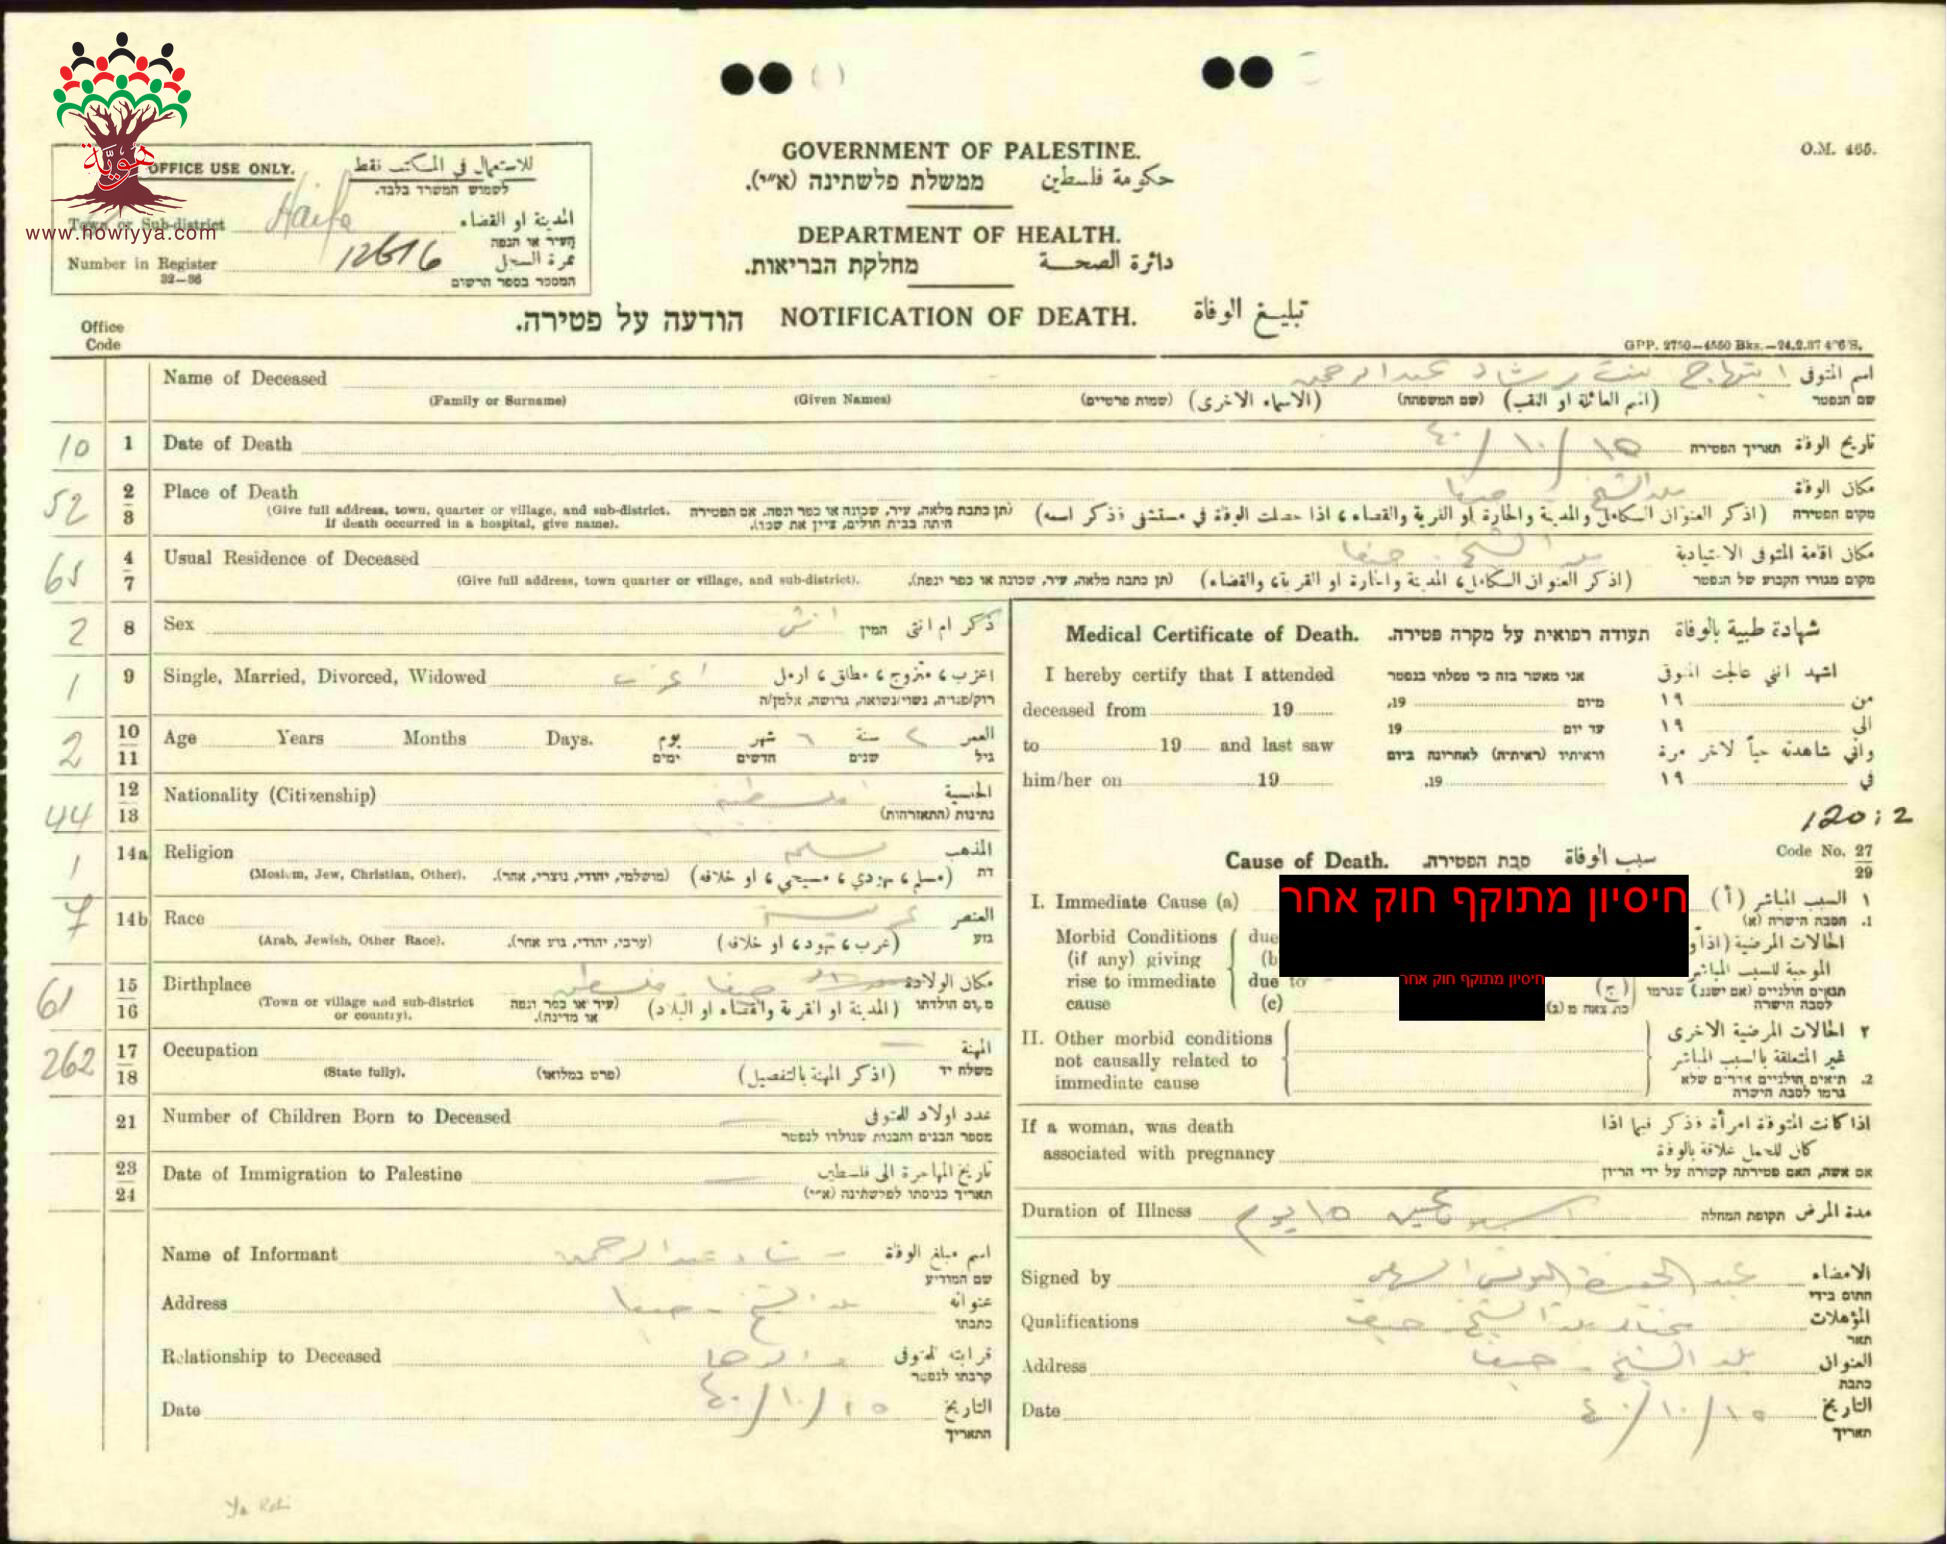 هوية
www.howiyya.com
OFFICE USE ONLY. للاستعمال في المكتب فقط
לשמוש המשרד בלבד.
Town or Sub-district Haifa المدينة او القضاء
העיר או הנפה
Number in Register 12616 نمرة السجل
32—36 המספר בספר הרשום
GOVERNMENT OF PALESTINE.
ממשלת פלשתינה (א״י). حكومة فلسطين
DEPARTMENT OF HEALTH.
מחלקת הבריאות. دائرة الصحة
O.M. 465.
הודעה על פטירה. NOTIFICATION OF DEATH. تبليغ الوفاة
Office
Code
Name of Deceased ابتهاج بنت رشاد عبد الرحمن اسم المتوفى
(Family or Surname) (Given Names) (שמות פרטיים) (الاسماء الاخرى) (שם המשפחה) (اسم العائلة او اللقب) שם הנפטר
10 1 Date of Death ١٥/١٠/٤٠ תאריך הפטירה تاريخ الوفاة
52 2 3 Place of Death بلد الشيخ - حيفا مكان الوفاة
(Give full address, town, quarter or village, and sub-district. If death occurred in a hospital, give name).
(תן כתבת מלאה, עיר, שכונה או כפר ונפה. אם הפטירה היתה בבית חולים, ציין את שכו).
(اذكر العنوان الكامل والمدينة والحارة او القرية والقضاء، اذا حصلت الوفاة في مستشفى فذكر اسمه) מקום הפטירה
65 4 7 Usual Residence of Deceased بلد الشيخ - حيفا مكان اقامة المتوفى الاعتيادية
(Give full address, town quarter or village, and sub-district). (תן כתבת מלאה, עיר, שכונה או כפר ונפה). (اذكر العنوان الكامل، المدينة والحارة او القرية، والقضاء) מקום מגורו הקבוע של הנפטר
2 8 Sex انثى המין ذكر ام انثى
1 9 Single, Married, Divorced, Widowed اعزب اعزب، متزوج، مطلق، ارمل
רוק/פנויה, נשוי/נשואה, גרושה, אלמן/ה
2 10 11 Age Years Months Days. يوم شهر ٦ سنة ٢ العمر
ימים חדשים שנים גיל
44 12 13 Nationality (Citizenship) فلسطينية الجنسية
נתינות (התאזרחות)
1 14a Religion مسلم المذهب
(Moslem, Jew, Christian, Other). (מושלמי, יהודי, נוצרי, אחר). (مسلم، يهودي، مسيحي، او خلافه) דת
7 14b Race عربية العنصر
(Arab, Jewish, Other Race). (ערבי, יהודי, גזע אחר). (عرب، يهود، او خلافه) גזע
61 15 16 Birthplace حيفا - فلسطين مكان الولادة
(Town or village and sub-district or country). (עיר או כפר ונפה או מדינה). (المدينة او القرية والقضاء او البلاد) מקום הולדתו
262 17 18 Occupation — المهنة
(State fully). (פרט במלואו) (اذكر المهنة بالتفصيل) משלח יד
21 Number of Children Born to Deceased — عدد اولاد المتوفى
מספר הבנים והבנות שנולדו לנפטר
23 24 Date of Immigration to Palestine — تاريخ المهاجرة الى فلسطين
תאריך כניסתו לפלשתינה (א״י)
Name of Informant رشاد عبد الرحمن اسم مبلغ الوفاة
שם המודיע
Address بلد الشيخ - حيفا عنوانه
כתבתו
Relationship to Deceased والدها قرابته للمتوفى
קרבתו לנפטר
Date ١٥/١٠/٤٠ التاريخ
התאריך
Medical Certificate of Death. תעודה רפואית על מקרה פטירה. شهادة طبية بالوفاة
I hereby certify that I attended אני מאשר בזה כי טפלתי בנפטר اشهد انني عالجت المتوفى
deceased from 19 19, מיום ١٩ من
to 19 and last saw 19 עד יום ١٩ الى
וראיתיו (ראיתיה) לאחרונה ביום واني شاهدته حياً لاخر مرة
him/her on 19 19. ١٩ في
120:2
Cause of Death. סבת הפטירה. سبب الوفاة Code No. 27 29
I. Immediate Cause (a) חיסיון מתוקף חוק אחר ١ السبب المباشر (أ)
1. הסבה הישרה (א)
Morbid Conditions due الحالات المرضية
(if any) giving (b الموجبة للسبب المباشر
rise to immediate due to חיסיון מתוקף חוק אחר (ج) תנאים חולניים (אם ישנם) שגרמו
cause (c) לסבה הישרה
II. Other morbid conditions ٢ الحالات المرضية الاخرى
not causally related to غير المتعلقة بالسبب المباشر
immediate cause 2. תנאים חולניים אחרים שלא
גרמו לסבה הישרה
If a woman, was death اذا كانت المتوفاة امرأة فذكر فيما اذا
associated with pregnancy كان للحمل علاقة بالوفاة
אם אשה, האם פטירתה קשורה על ידי הריון
Duration of Illness اسبوعين ١٥ يوم תקופת המחלה مدة المرض
Signed by الامضاء
חתום בידי
Qualifications مختار بلد الشيخ - حيفا المؤهلات
תאר
Address بلد الشيخ - حيفا العنوان
כתבת
Date ١٥/١٠/٤٠ التاريخ
תאריך